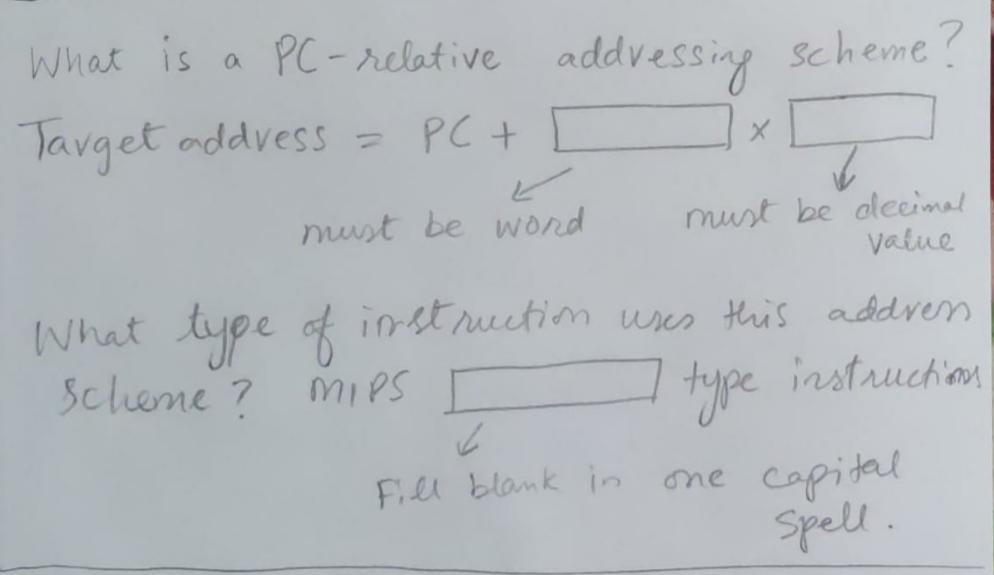 What is a PC-relative addressing scheme?
Target address = PC + × 
must be word must be decimal
value
What type of instruction uses this address
scheme? MIPS type instructions
Fill blank in one capital
spell.